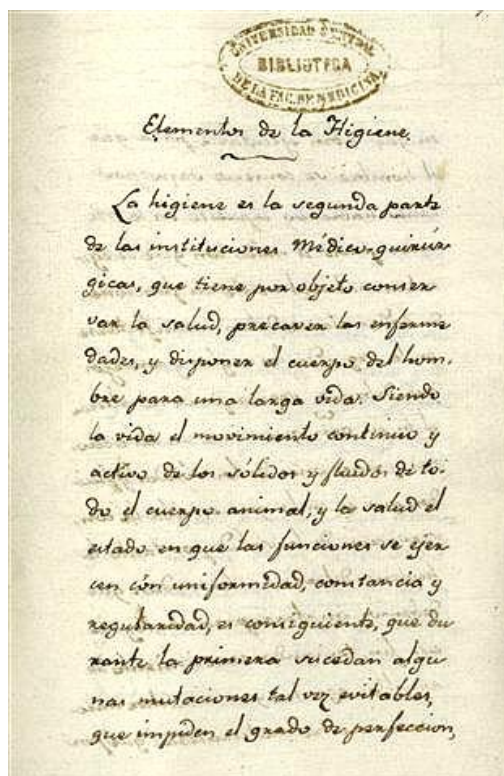 UNIVERSIDAD CENTRAL
BIBLIOTECA
DE LA FAC. DE MEDICINA
Elementos de la Higiene.
La higiene es la segunda parte
de las instituciones Médico-quirúr
gicas, que tiene por objeto conser
var la salud, precaver las enferme
dades, y disponer el cuerpo del hom-
bre para una larga vida. Siendo
la vida el movimiento continuo y
activo de los sólidos y fluidos de to-
do el cuerpo animal, y la salud el
estado en que las funciones se ejer
cen con uniformidad, constancia y
regularidad, es consiguiente, que du
rante la primera sucedan algu
nas mutaciones tal vez evitables,
que impiden el grado de perfeccion,